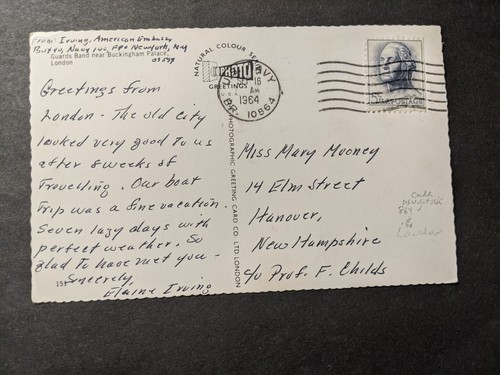 From: Irving, American Embassy
Box 40, Navy 100, FPO New York, N.Y.
09599
Guards Band near Buckingham Palace,
London
Greetings from
London - The old city
looked very good to us
after 8 weeks of
Travelling. Our boat
Trip was a fine vacation.
Seven lazy days with
perfect weather. So
glad To have met you -
Sincerely,
Elaine Irving
NATURAL COLOUR
GREETINGS
PHOTOGRAPHIC GREETING CARD CO. LTD. LONDON
U.S. NAVY
16
AM
1964
BR. 10964
U.S. POSTAGE
Miss Mary Mooney
14 Elm Street
Hanover,
New Hampshire
c/o Prof. F. Childs
864
London